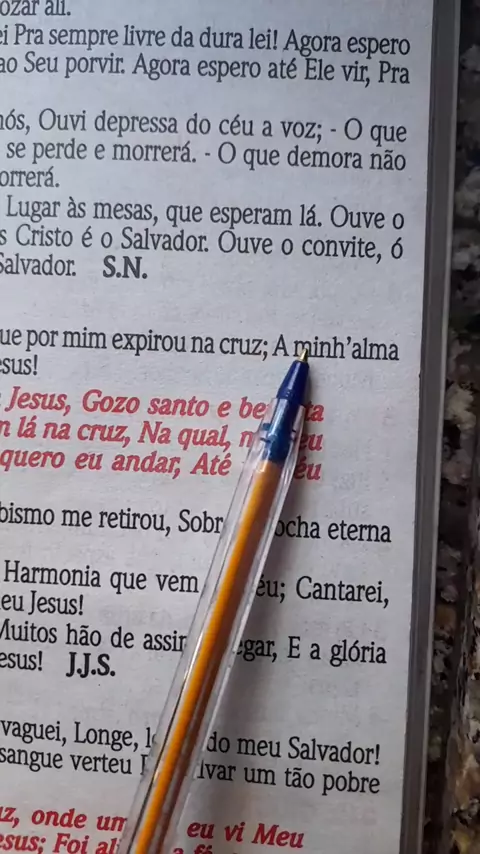 ozar ali.
ei Pra sempre livre da dura lei! Agora espero
ao Seu porvir. Agora espero até Ele vir, Pra
nós, Ouvi depressa do céu a voz; - O que
se perde e morrerá. - O que demora não
orrerá.
Lugar às mesas, que esperam lá. Ouve o
s Cristo é o Salvador. Ouve o convite, ó
Salvador. S.N.
ue por mim expirou na cruz; A minh'alma
esus!
Jesus, Gozo santo e be ta
n lá na cruz, Na qual, m eu
quero eu andar, Até éu
bismo me retirou, Sobr ocha eterna
Harmonia que vem éu; Cantarei,
eu Jesus!
Muitos hão de assim egar, E a glória
esus! J.J.S.
vaguei, Longe, l do meu Salvador!
sangue verteu lvar um tão pobre
uz, onde um eu vi Meu
esus; Foi ali a fé